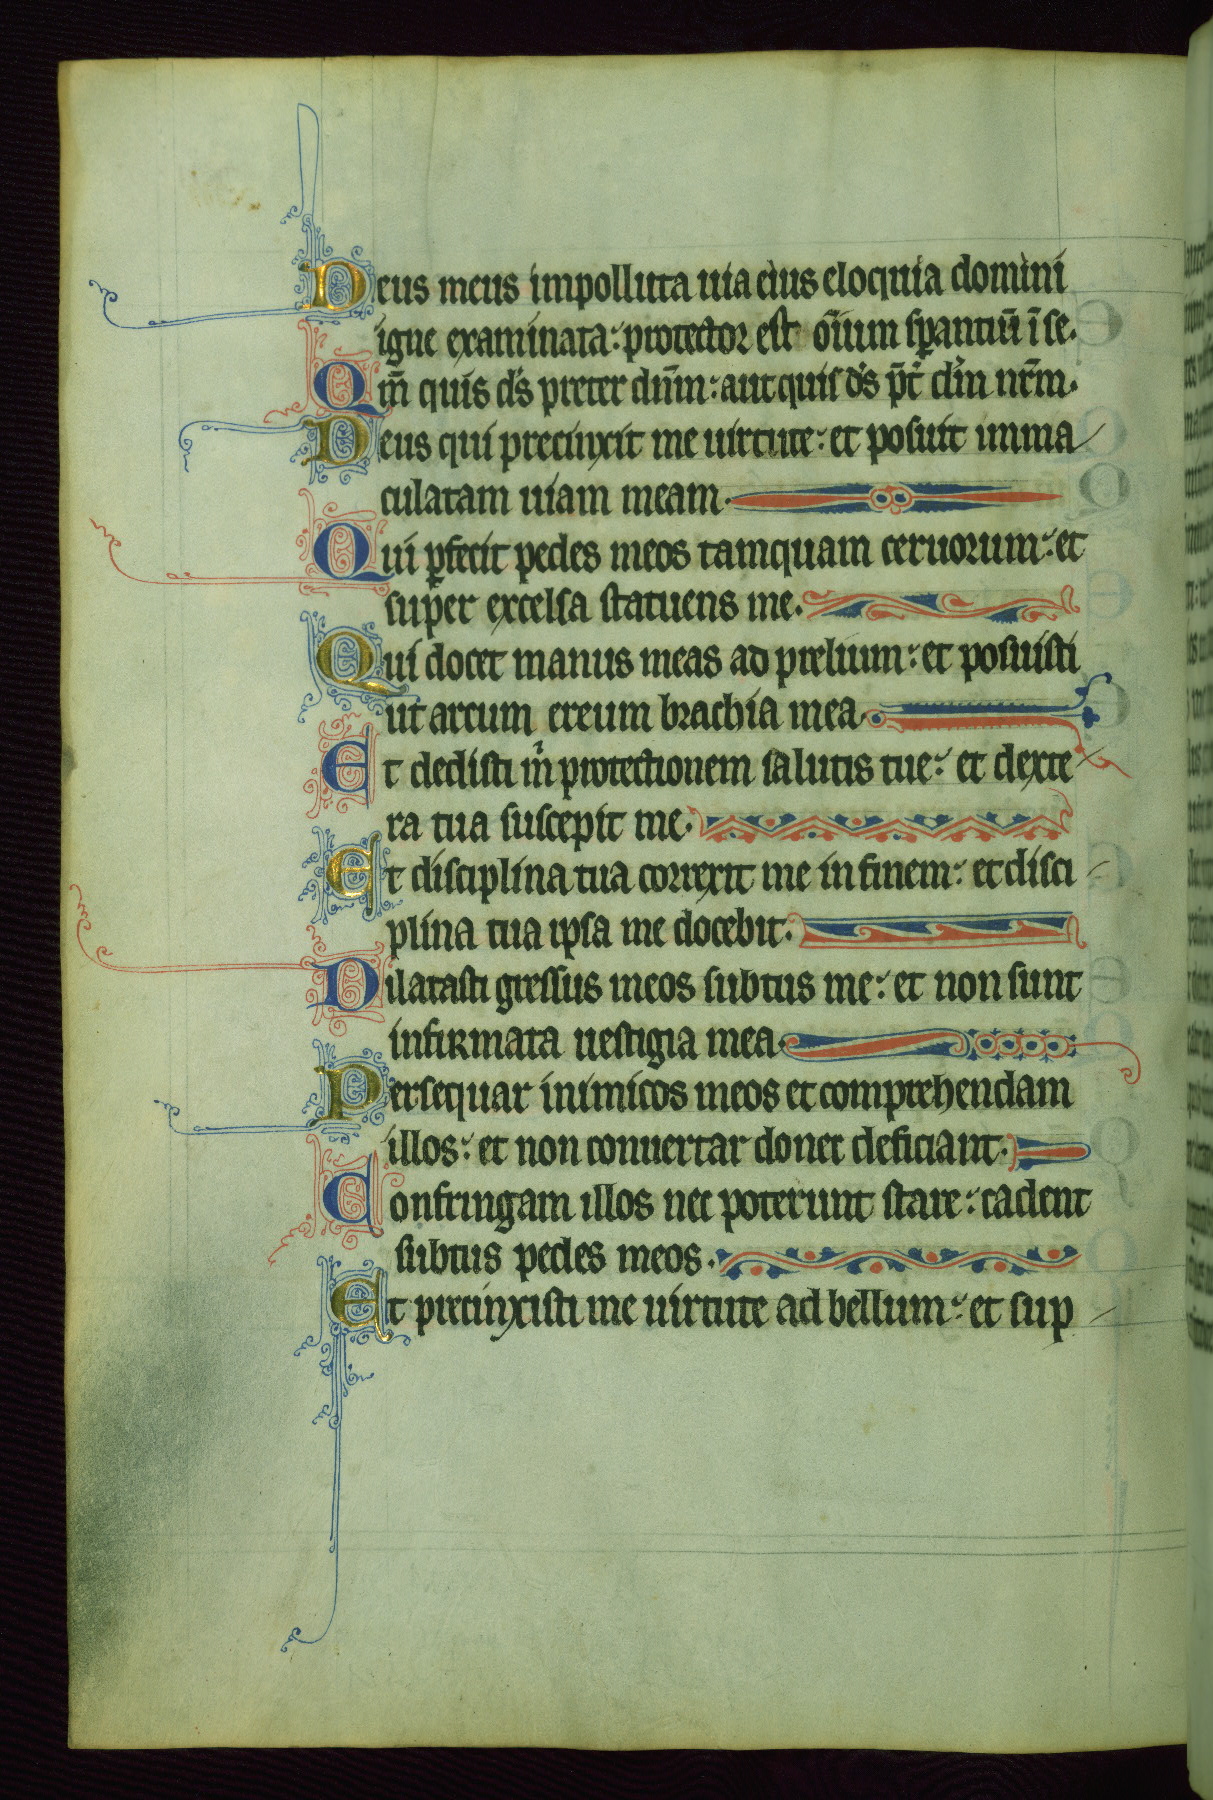 Deus meus impolluta uia eius eloquia domini
igne examinata: protector est om̄ium sꝑantiū ī se.
Qm̄ quis ds̄ preter dn̄m: aut quis ds̄ p̄t̾ dn̄m nr̄m.
Deus qui precinxit me uirtute: et posuit imma
culatam uiam meam.
Qui ꝑfecit pedes meos tamquam ceruorum: et
super excelsa statuens me.
Qui docet manus meas ad prelium: et posuisti
ut arcum ereum brachia mea.
Et dedisti m̉ protectionem salutis tue: et dexte
ra tua suscepit me.
Et disciplina tua correxit me in finem: et disci
plina tua ipsa me docebit.
Dilatasti gressus meos subtus me: et non sunt
infirmata uestigia mea.
Persequar inimicos meos et comprehendam
illos: et non conuertar donec deficiant.
Confringam illos nec poterunt stare: cadent
subtus pedes meos.
Et precinxisti me uirtute ad bellum: et sup